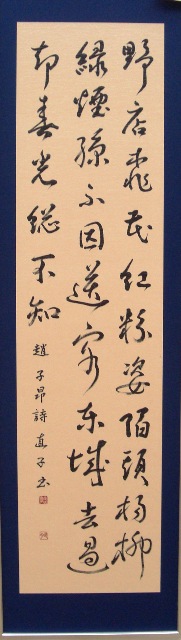 野店桃花紅粉姿陌頭楊柳
緑煙絲不因送客東城去過
却春光総不知 趙子昂詩 直子書